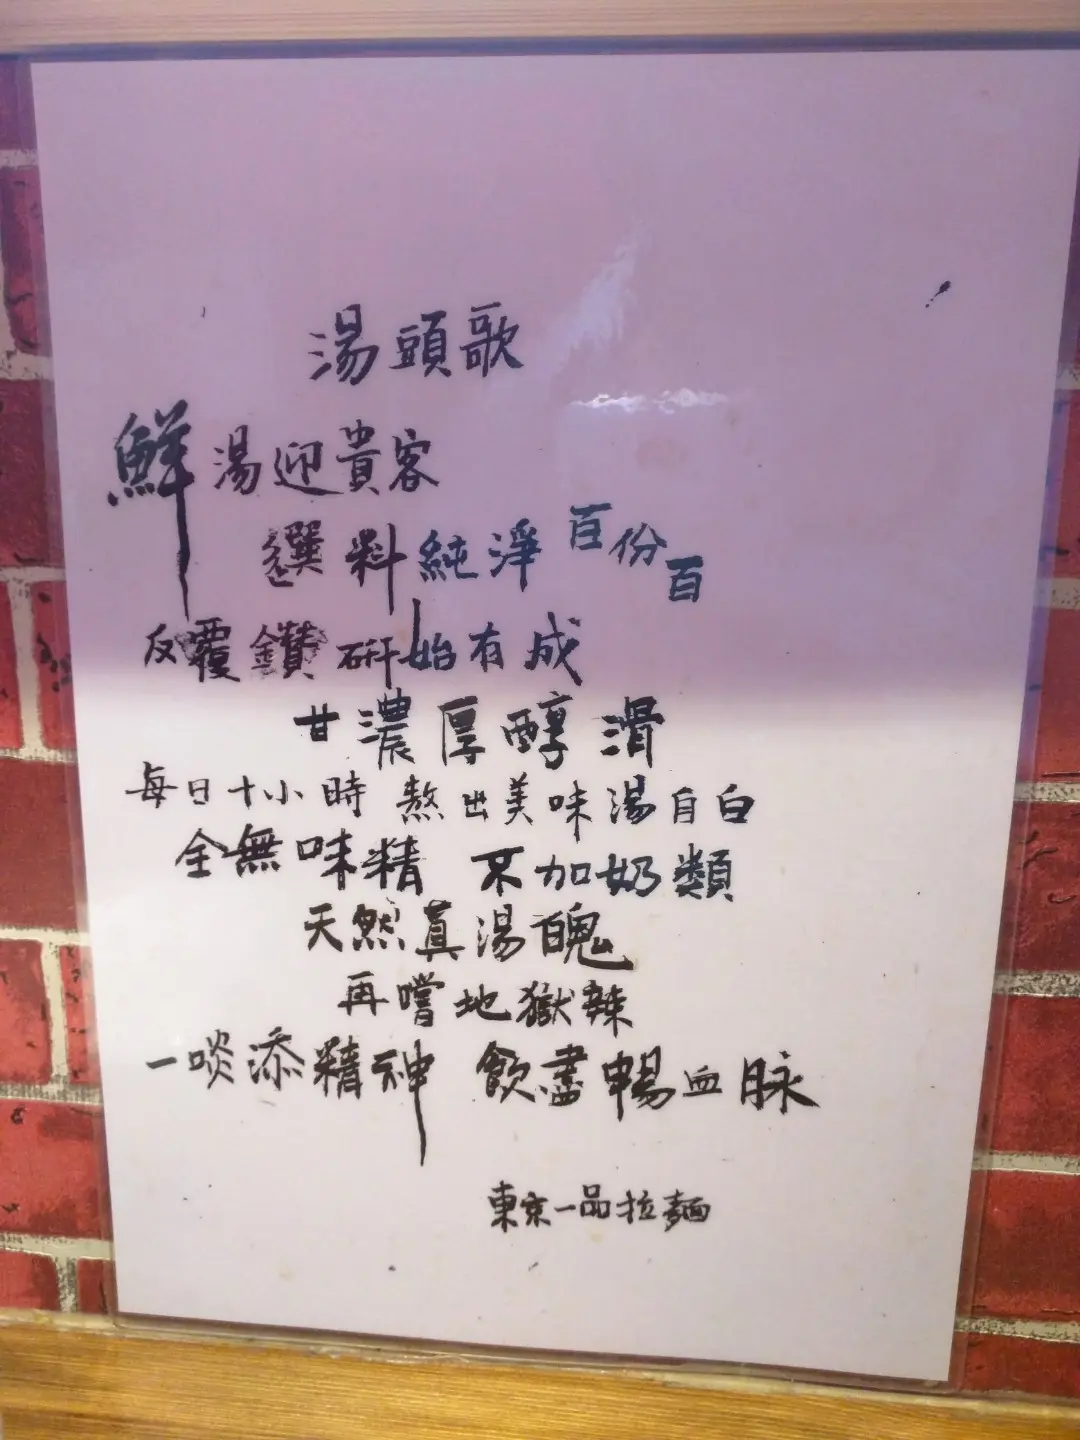 湯頭歌
鮮湯迎貴客
選料純淨百份百
反覆鑽研始有成
甘濃厚醇滑
每日十小時 熬出美味湯自白
全無味精 不加奶類
天然真湯魄
再嚐地獄辣
一啖添精神 飲盡暢血脉
東京一品拉麵